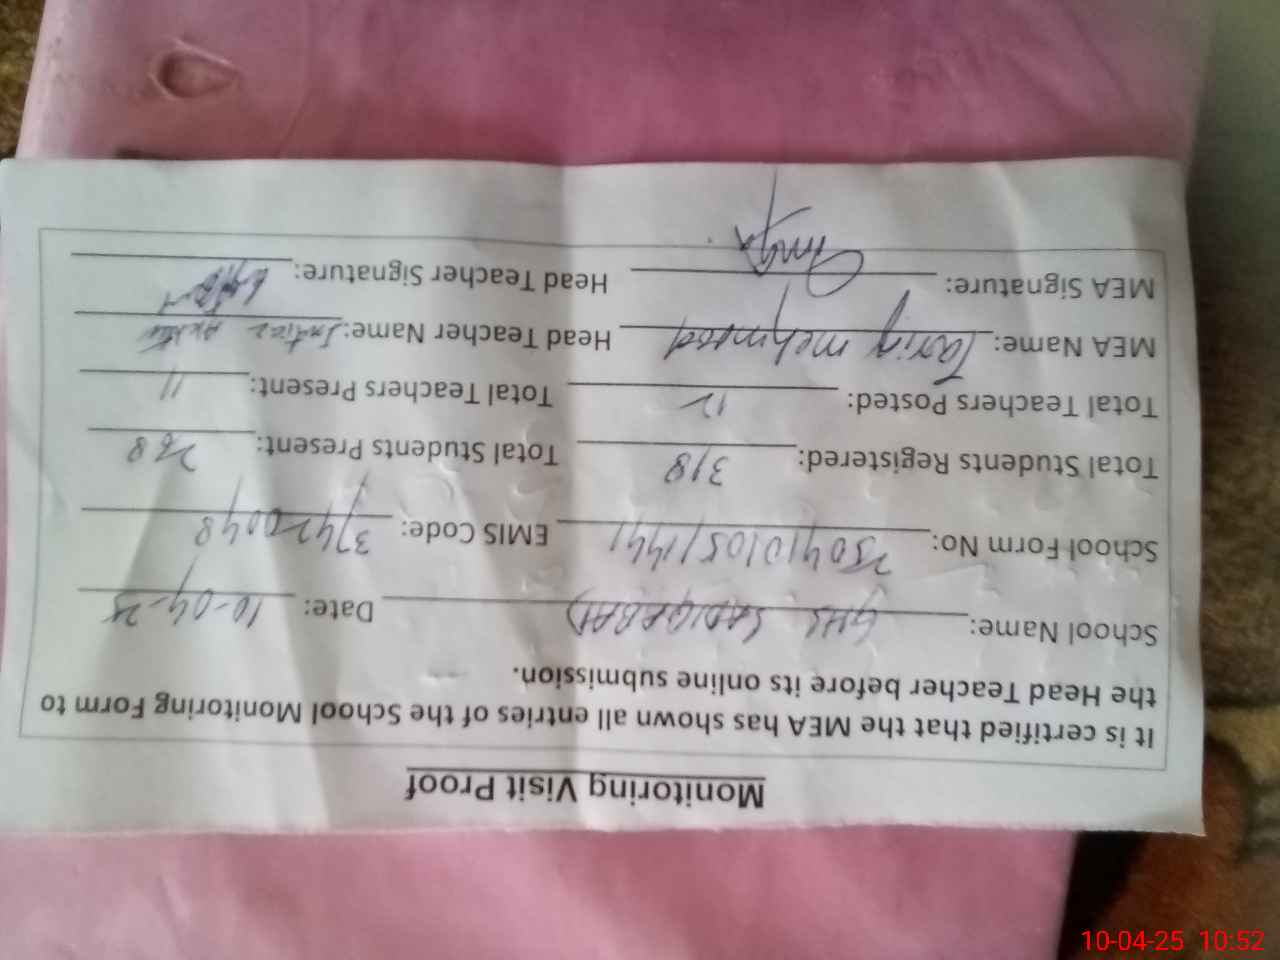 Monitoring Visit Proof
It is certified that the MEA has shown all entries of the School Monitoring Form to
the Head Teacher before its online submission.
School Name: GHS SADIQABAD Date: 10-04-25
School Form No: 25041010511441 EMIS Code: 37420048
Total Students Registered: 318 Total Students Present: 288
Total Teachers Posted: 12 Total Teachers Present: 11
MEA Name: Tariq mehmood Head Teacher Name: Imtiaz Akhtar
MEA Signature: Head Teacher Signature:
10-04-25 10:52